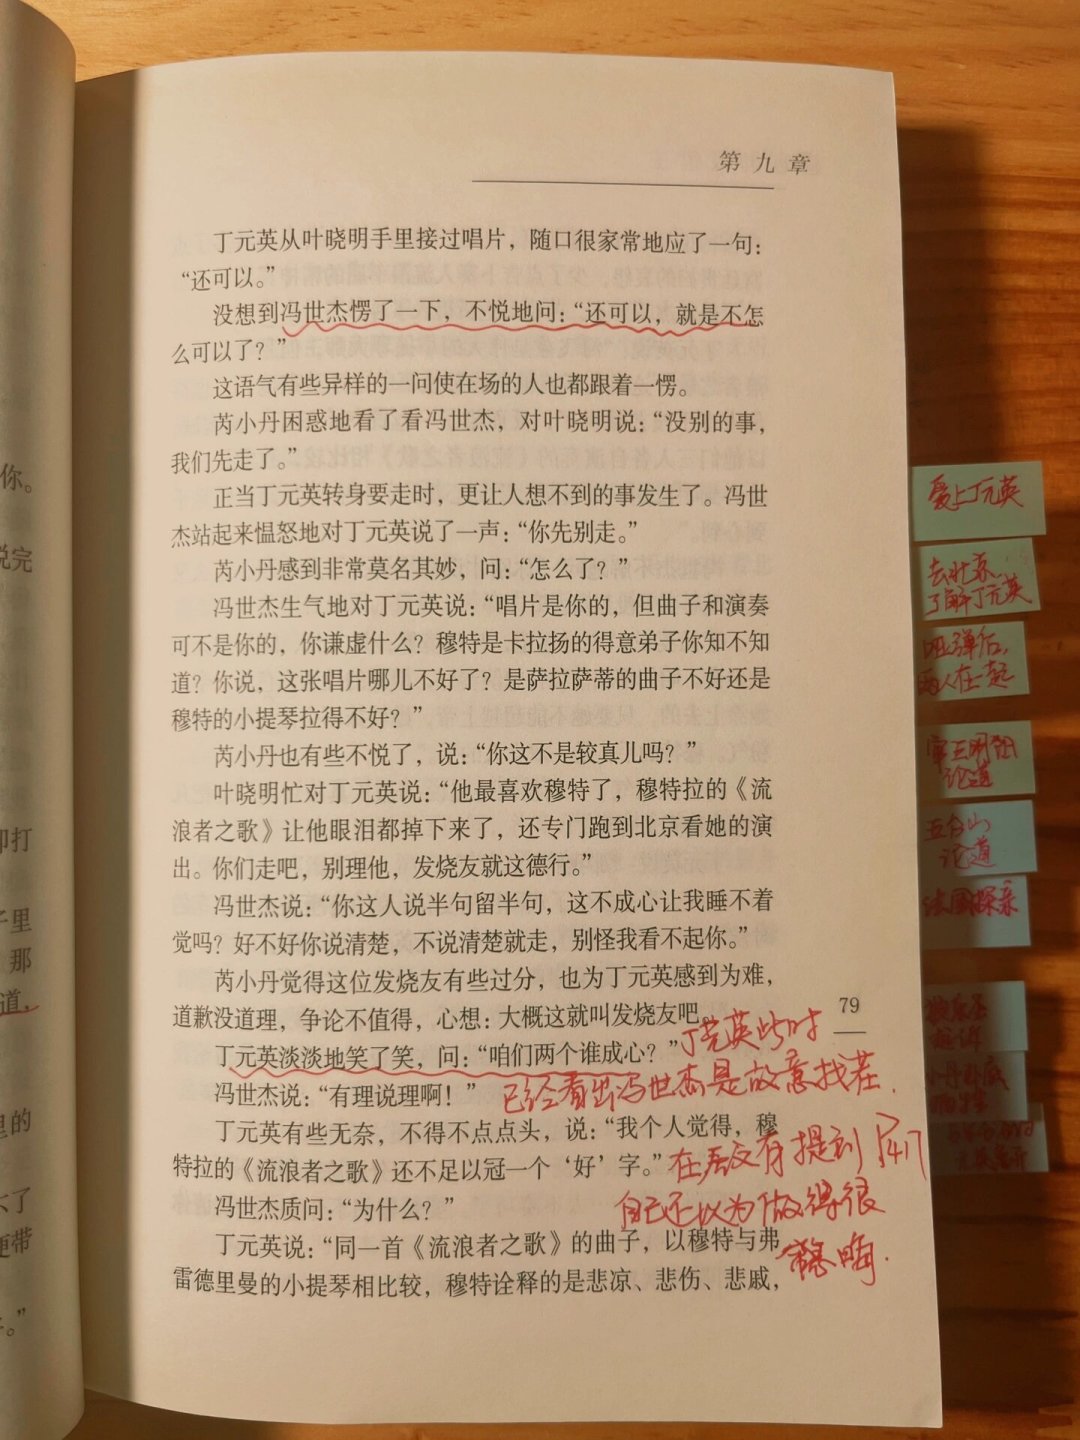 第九章
丁元英从叶晓明手里接过唱片，随口很家常地应了一句：
“还可以。”
没想到冯世杰愣了一下，不悦地问：“还可以，就是不怎
么可以了？”
这语气有些异样的一问使在场的人也都跟着一愣。
芮小丹困惑地看了看冯世杰，对叶晓明说：“没别的事，
我们先走了。”
正当丁元英转身要走时，更让人想不到的事发生了。冯世
杰站起来愠怒地对丁元英说了一声：“你先别走。”
芮小丹感到非常莫名其妙，问：“怎么了？”
冯世杰生气地对丁元英说：“唱片是你的，但曲子和演奏
可不是你的，你谦虚什么？穆特是卡拉扬的得意弟子你知不知
道？你说，这张唱片哪儿不好了？是萨拉萨蒂的曲子不好还是
穆特的小提琴拉得不好？”
芮小丹也有些不悦了，说：“你这不是较真儿吗？”
叶晓明忙对丁元英说：“他最喜欢穆特了，穆特拉的《流
浪者之歌》让他眼泪都掉下来了，还专门跑到北京看她的演
出。你们走吧，别理他，发烧友就这德行。”
冯世杰说：“你这人说半句留半句，这不成心让我睡不着
觉吗？好不好你说清楚，不说清楚就走，别怪我看不起你。”
芮小丹觉得这位发烧友有些过分，也为丁元英感到为难，
道歉没道理，争论不值得，心想：大概这就叫发烧友吧。
丁元英淡淡地笑了笑，问：“咱们两个谁成心？”
冯世杰说：“有理说理啊！”
丁元英有些无奈，不得不点点头，说：“我个人觉得，穆
特拉的《流浪者之歌》还不足以冠一个‘好’字。”
冯世杰质问：“为什么？”
丁元英说：“同一首《流浪者之歌》的曲子，以穆特与弗
雷德里曼的小提琴相比较，穆特诠释的是悲凉、悲伤、悲戚，
79
丁元英此时
已经看出冯世杰是故意找茬.
在后文有提到
自己还以为做得很
隐晦.
你。
说完
却打
子里
那
道，
里的
大了
便带
。”
爱上丁元英
去北京
了解丁元英
哑弹后，
两人在一起
五台山
论道
法国探亲